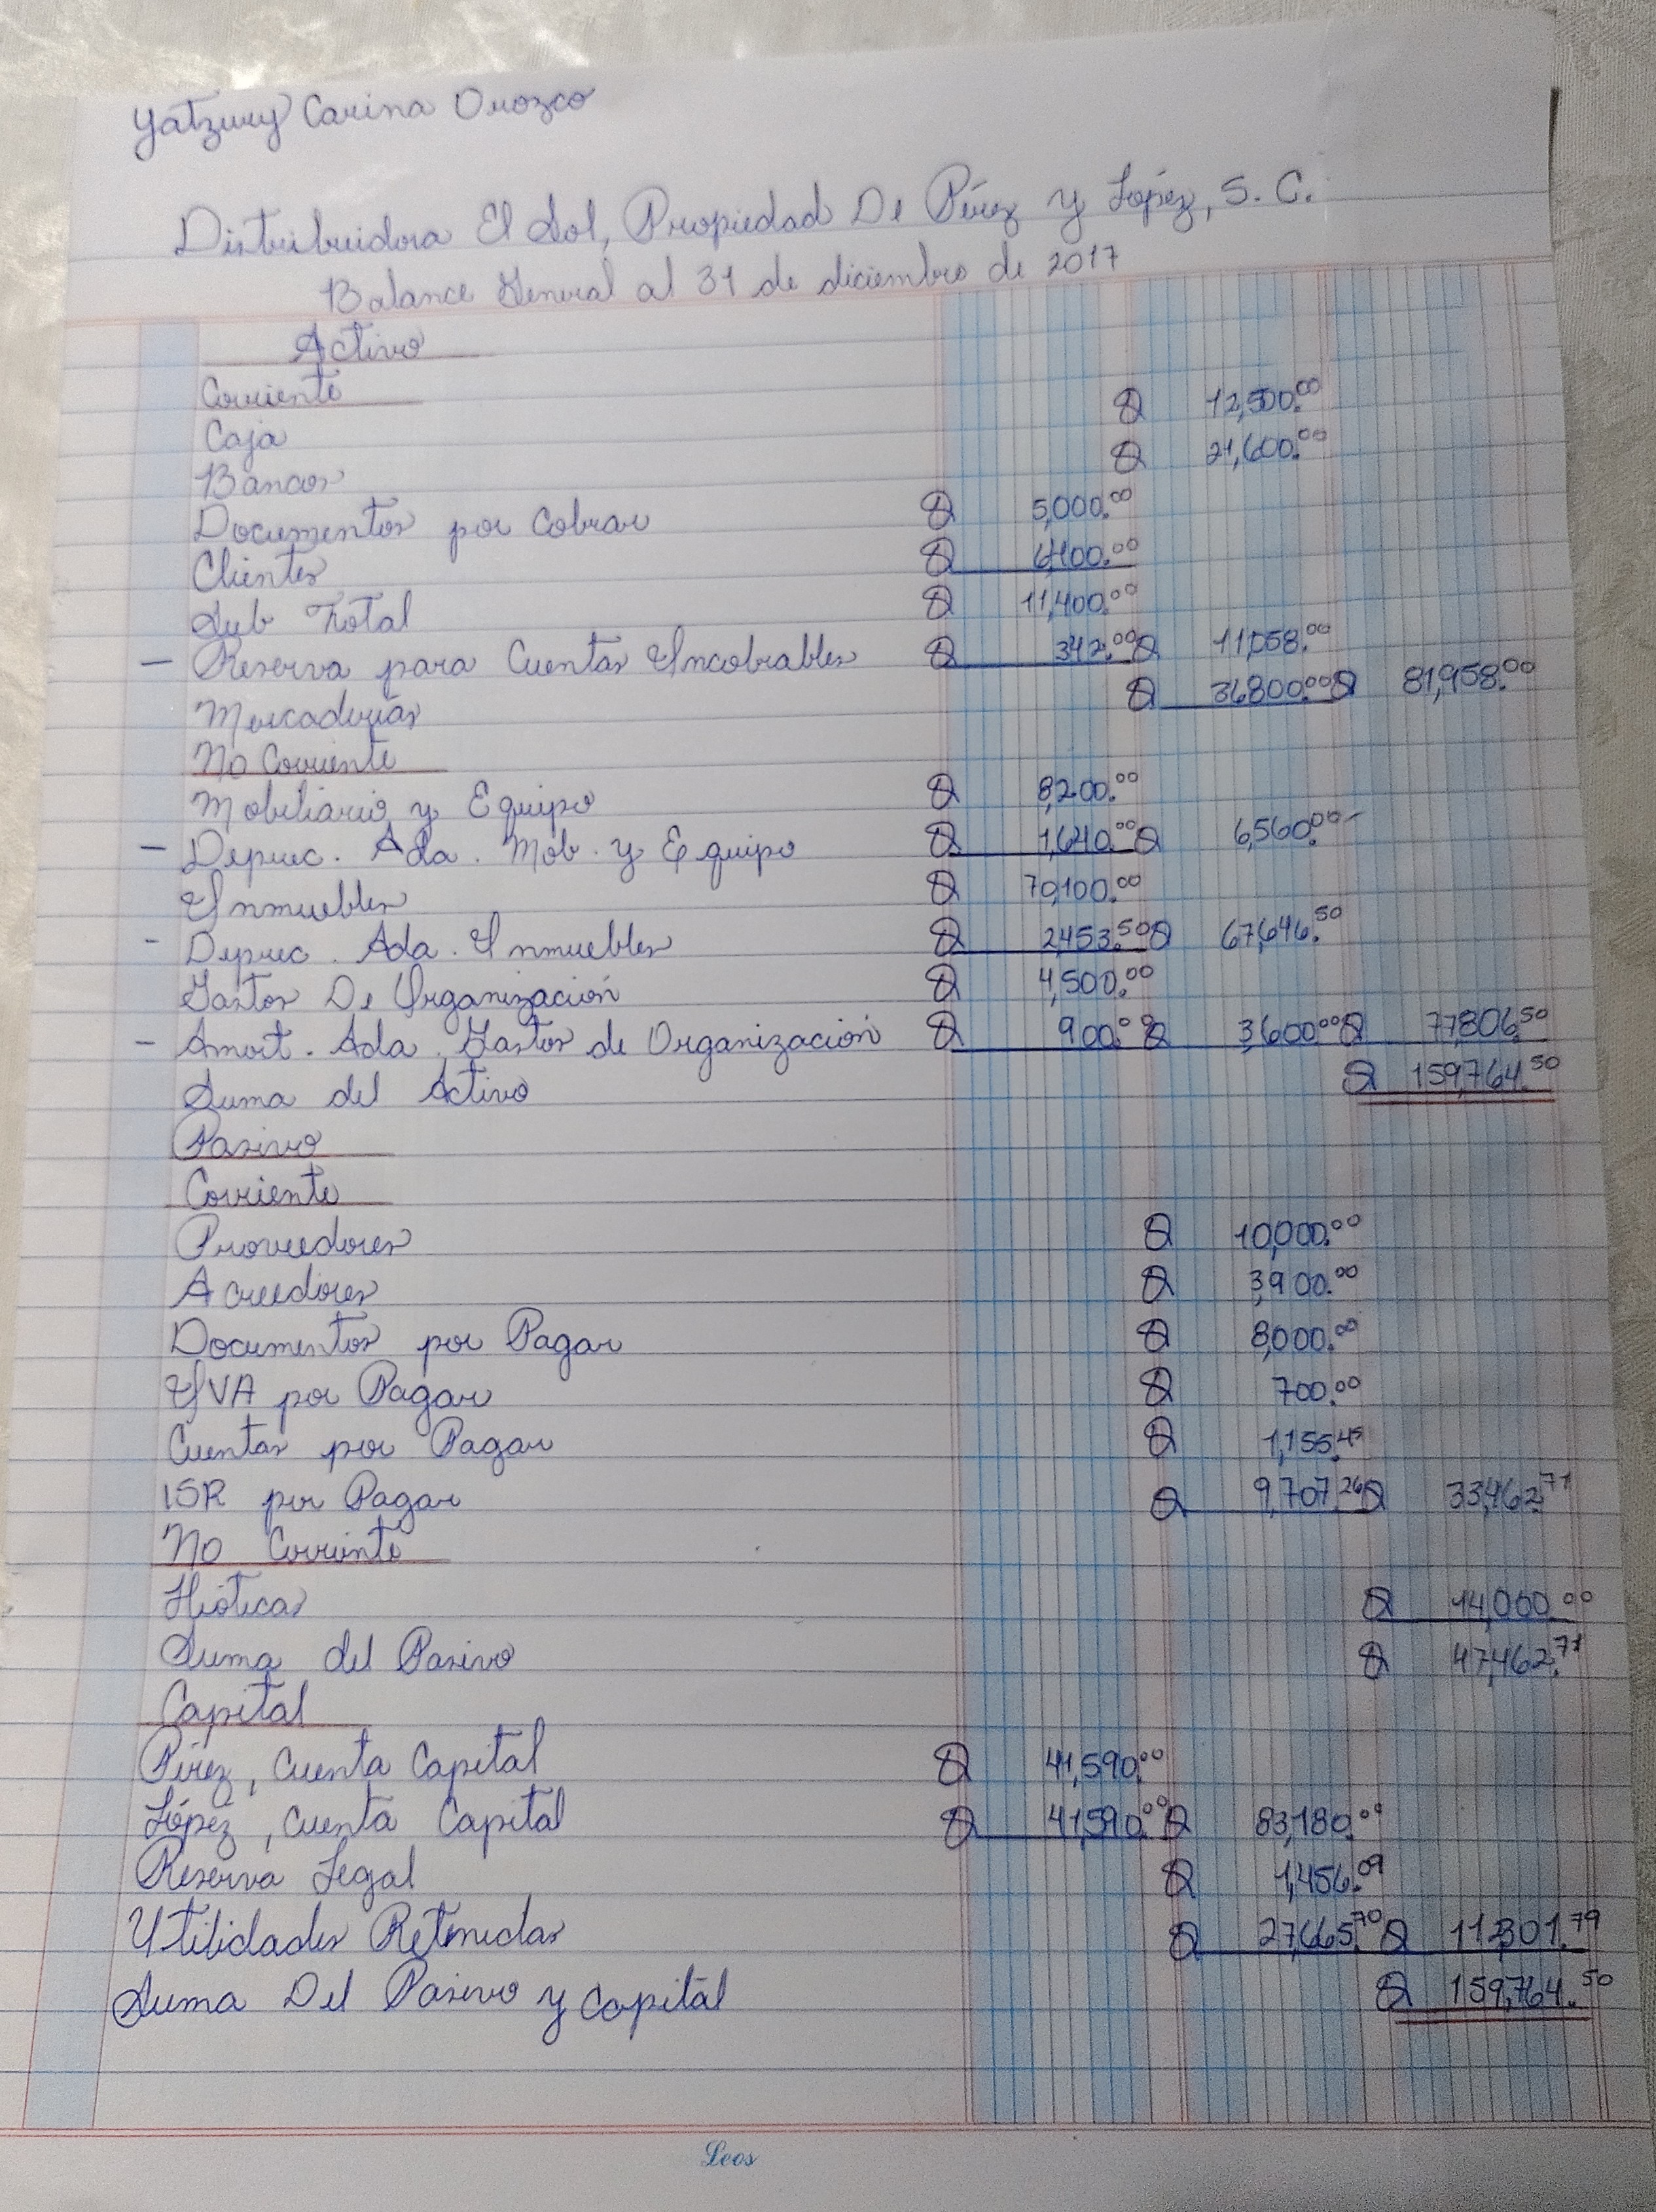 Yatzury Carina Orozco
Distribuidora El Sol, Propiedad De Pérez y López, S. C.
Balance General al 31 de diciembre de 2017
Activo
Corriente
Caja Q 12,500.00
Bancos Q 21,600.00
Documentos por Cobrar Q 5,000.00
Clientes Q 6,400.00
Sub Total Q 11,400.00
- Reserva para Cuentas Incobrables Q 342.00 Q 11,058.00
Mercaderías Q 36800.00 Q 81,958.00
No Corriente
Mobiliario y Equipo Q 8,200.00
- Deprec. Ada. Mob. y Equipo Q 1,640.00 Q 6,560.00
Inmuebles Q 70,100.00
- Deprec. Ada. Inmuebles Q 2453.50 Q 67,646.50
Gastos De Organización Q 4,500.00
- Amort. Ada. Gastos de Organización Q 900.00 Q 3,600.00 Q 77,806.50
Suma del Activo Q 159,764.50
Pasivo
Corriente
Proveedores Q 10,000.00
Acreedores Q 3,900.00
Documentos por Pagar Q 8,000.00
IVA por Pagar Q 700.00
Cuentas por Pagar Q 1,155.45
ISR por Pagar Q 9,707.26 Q 33,462.71
No Corriente
Hioticas Q 14,000.00
Suma del Pasivo Q 47,462.71
Capital
Pérez, Cuenta Capital Q 41,590.00
López, Cuenta Capital Q 41,590.00 Q 83,180.00
Reserva Legal Q 1,456.09
Utilidades Retenidas Q 27,665.70 Q 112,301.79
Suma Del Pasivo y Capital Q 159,764.50
Leos